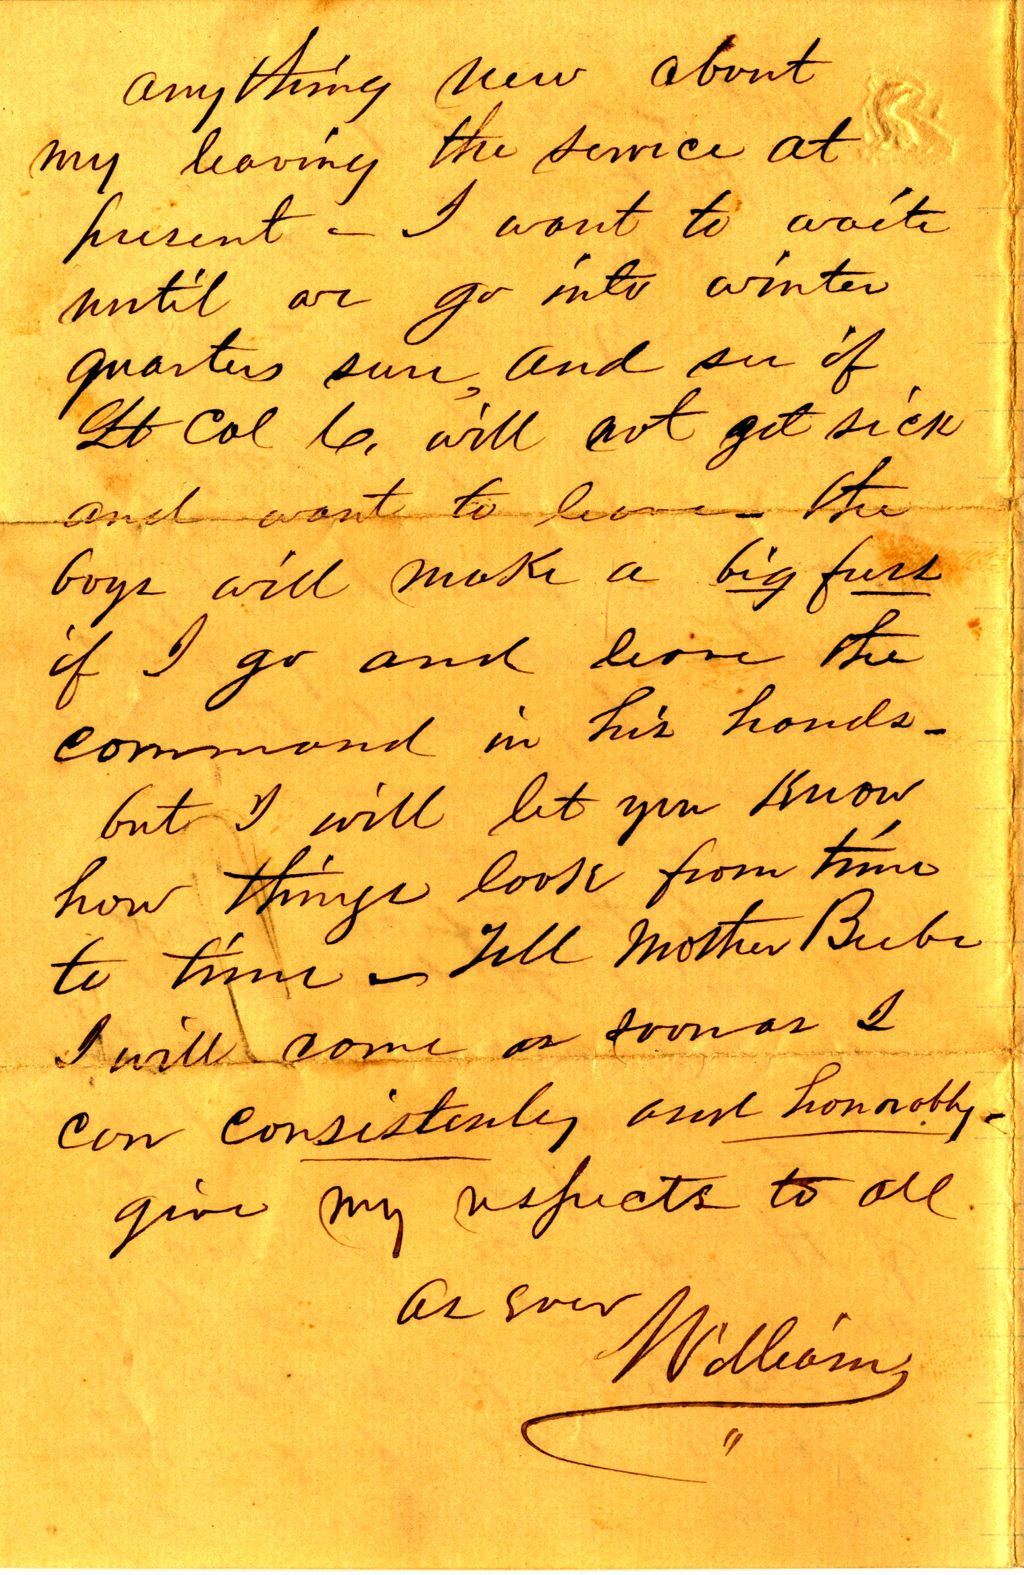 anything new about
my leaving the service at
present – I want to waite
until we go into winter
quarters sure, and see if
Lt Col C. will not get sick
and want to leave – the
boys will make a big fuss
if I go and leave the
command in his hands –
but I will let you know
how things look from time
to time – Tell Mother Beebe
I will come as soon as I
can consistenly and honorably –
give my respects to all
as ever
William